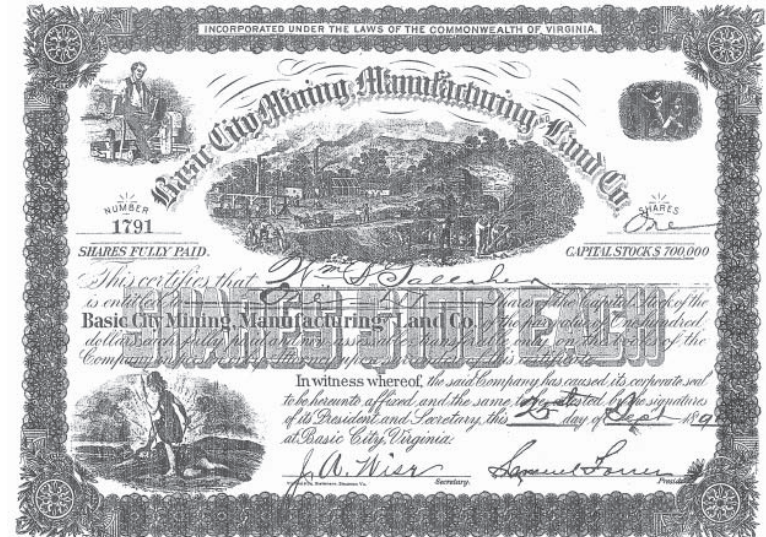 INCORPORATED UNDER THE LAWS OF THE COMMONWEALTH OF VIRGINIA.
Basic City Mining Manufacturing AND Land Co.
NUMBER
1791
SHARES
One
SHARES FULLY PAID.
CAPITAL STOCK $ 700,000
This certifies that Wm S
is entitled to One Shares of the Capital Stock of the
Basic City Mining, Manufacturing Land Co. of the par value of One hundred
dollars each fully paid and non assessable transferable only on the books of the
Company this certificate
SHARES $100 EACH
In witness whereof, the said Company has caused its corporate seal
to be hereunto affixed, and the same to be attested by the signatures
of its President and Secretary, this 25 day of Sept 189
at Basic City, Virginia:
J. A. Wise Samuel
Secretary. President